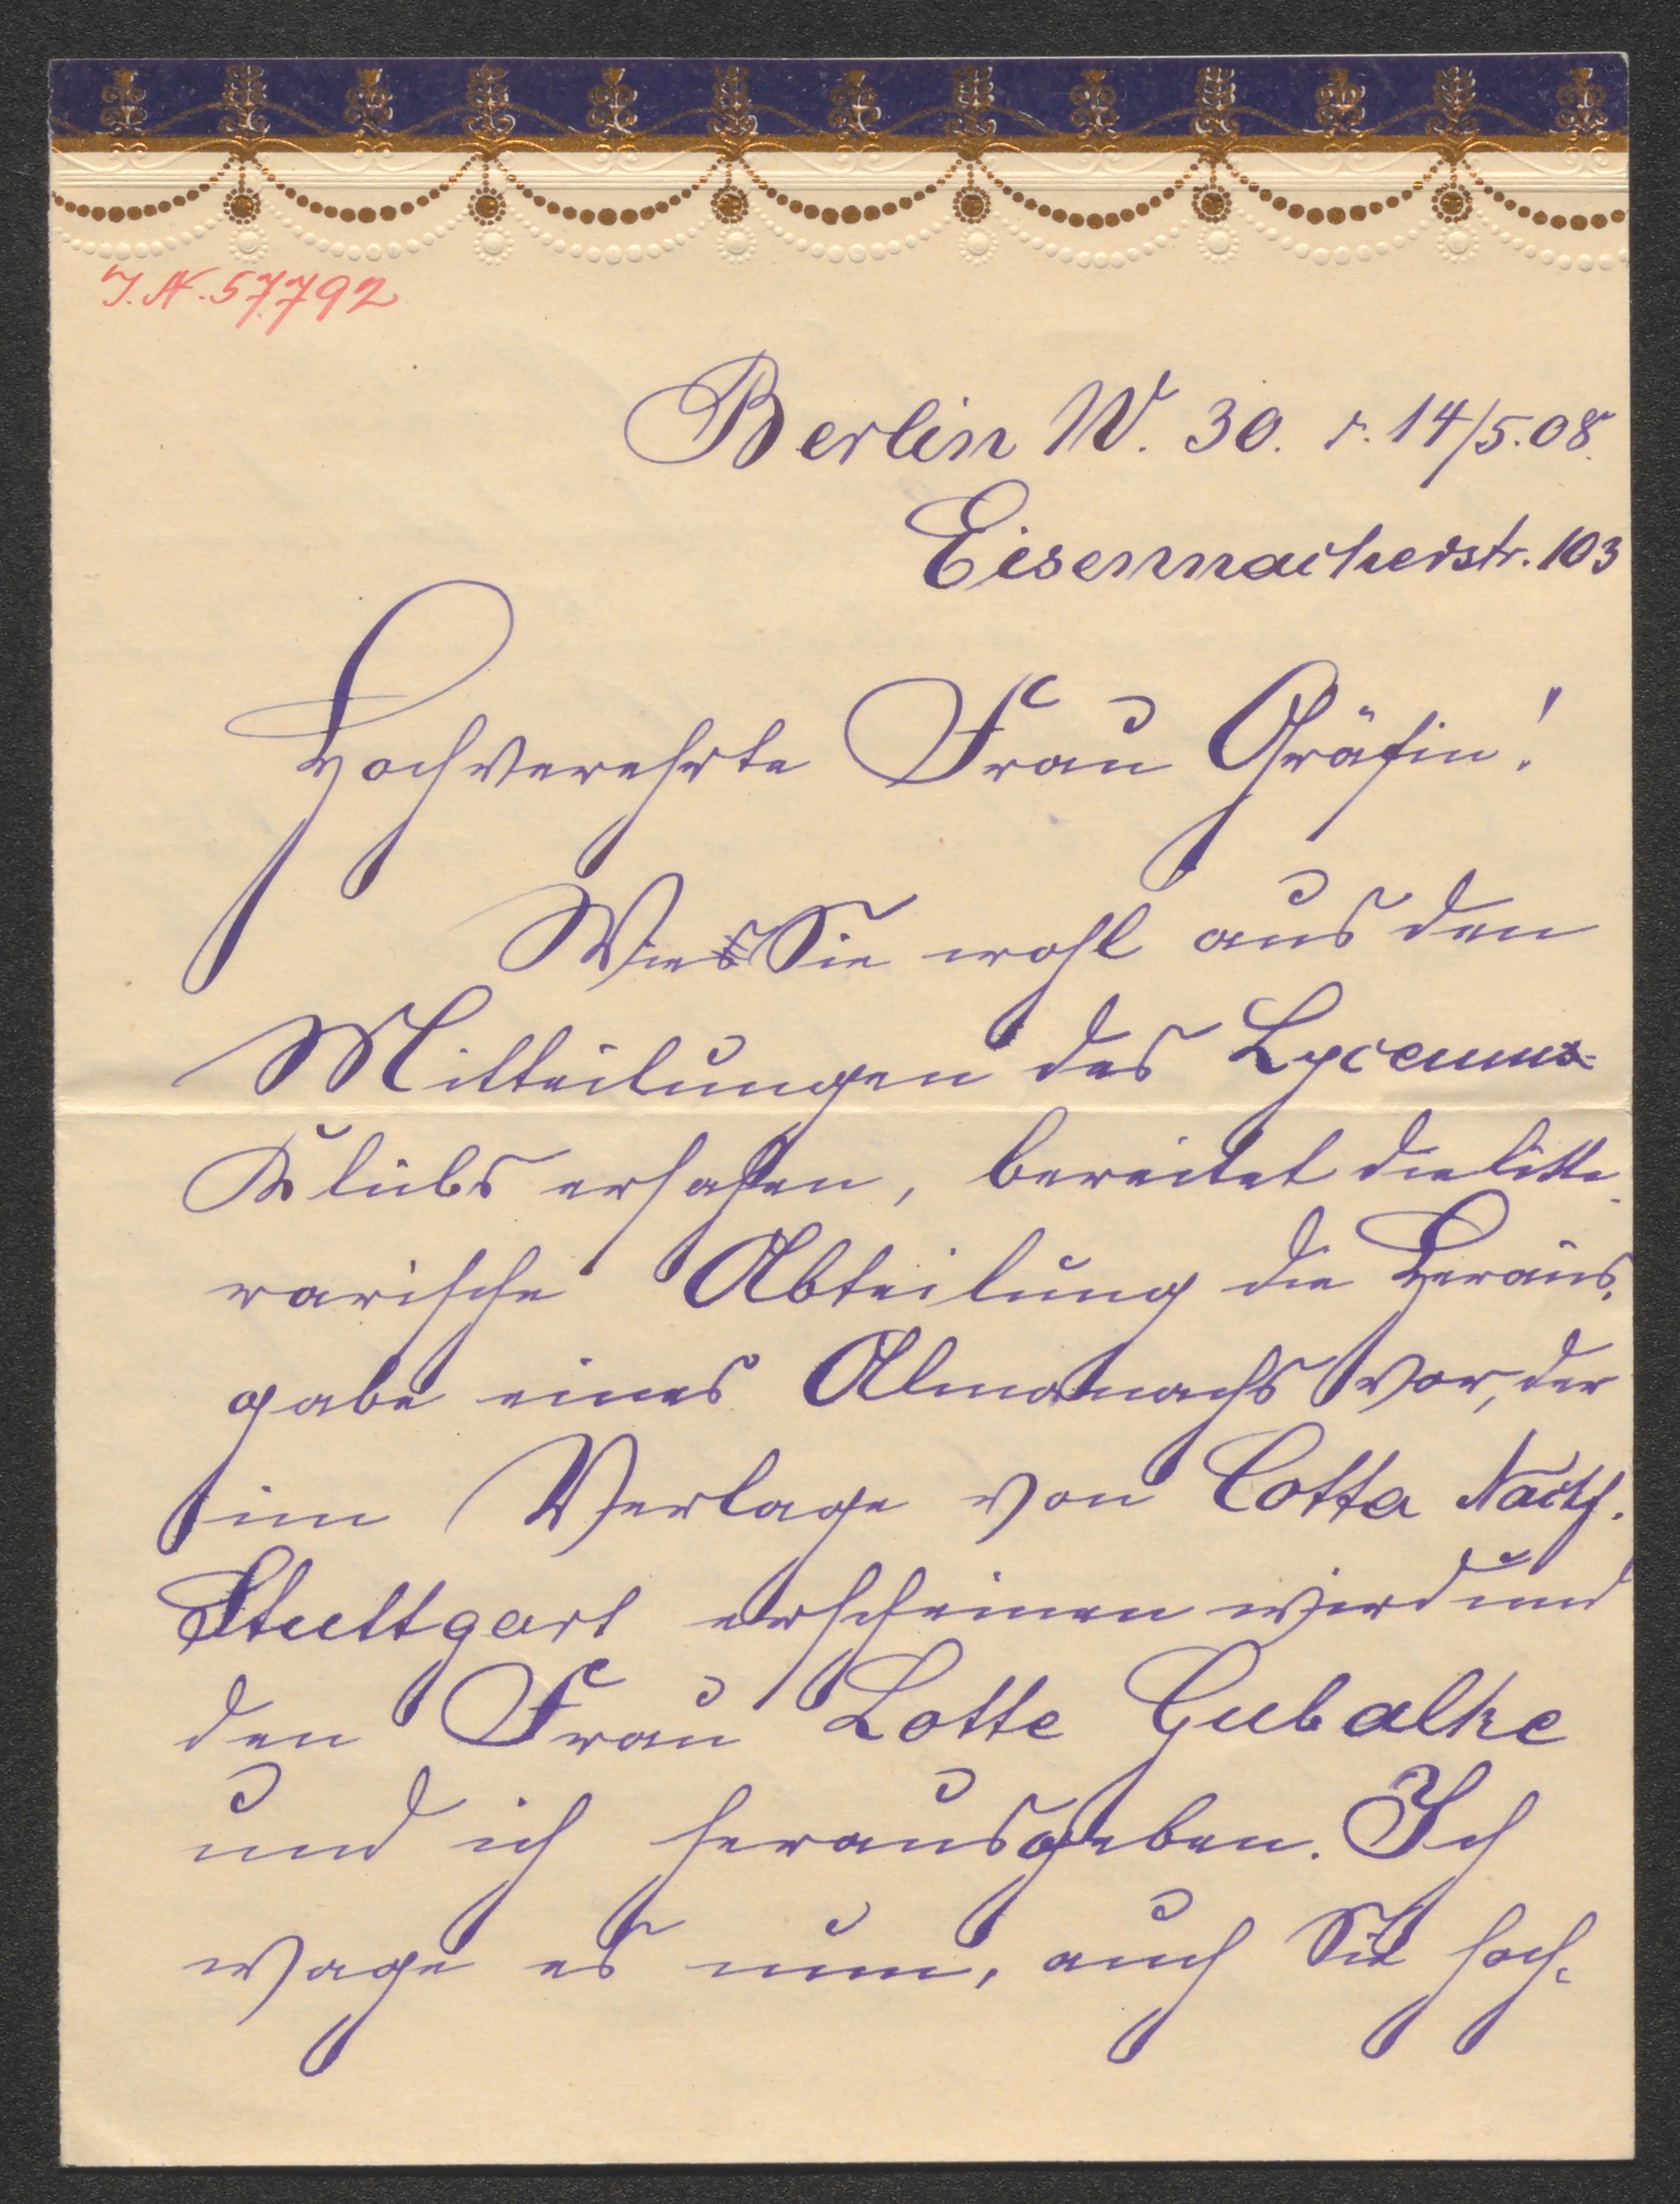 I.N. 57.792
Berlin W. 30. d. 14/5.08.
Eisennacherstr. 103
Hochverehrte Frau Gräfin!
Wie Sie wohl aus den
Mitteilungen des Lyceum-
Klubs ersahen, bereitet die litte-
rarische Abteilung die Heraus-
gabe eines Almanachs vor, der
im Verlage von Cotta Nachf.
Stuttgart erscheinen wird und
den Frau Lotte Gubalke
und ich herausgeben. Ich
wage es nun, auch Sie hoch-